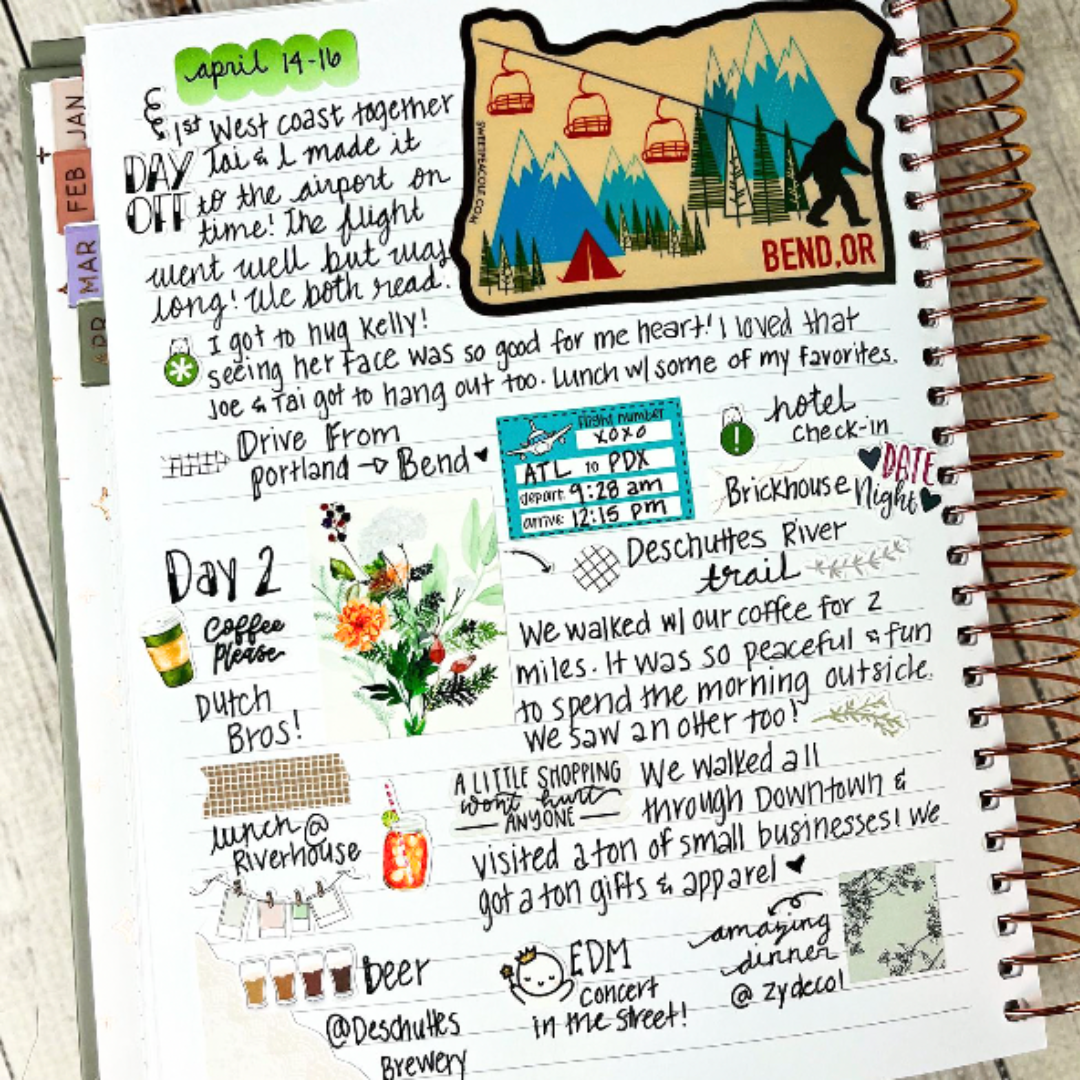 april 14-16
JAN
FEB
MAR
APR
1st West coast together
DAY
OFF
Tai & I made it
to the airport on
time! The flight
went well but was
long! We both read.
SWEETPEACOLE.COM
BEND,OR
I got to hug Kelly!
seeing her face was so good for me heart! I loved that
Joe & Tai got to hang out too. Lunch w/ some of my favorites.
Drive From
portland → Bend
flight number
XOXO
ATL to PDX
depart: 9:28 am
arrive: 12:15 pm
hotel
check-in
Brickhouse
DATE
Night
Day 2
Coffee
Please
Dutch
Bros!
Deschuttes River
trail
We walked w/ our coffee for 2
miles. It was so peaceful & fun
to spend the morning outside.
We saw an otter too!
lunch @
Riverhouse
A LITTLE SHOPPING
wont hurt
ANYONE
We walked all
through Downtown &
visited a ton of small businesses! We
got a ton gifts & apparel
beer
@Deschuttes
Brewery
EDM
concert
in the street!
amazing
dinner
@ zydeco!